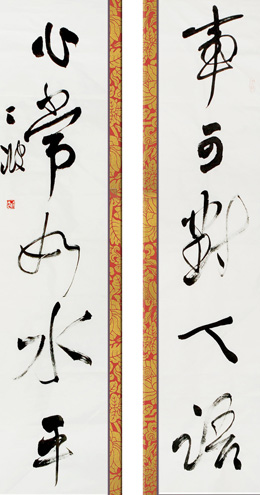 事可對人語
心常如水平